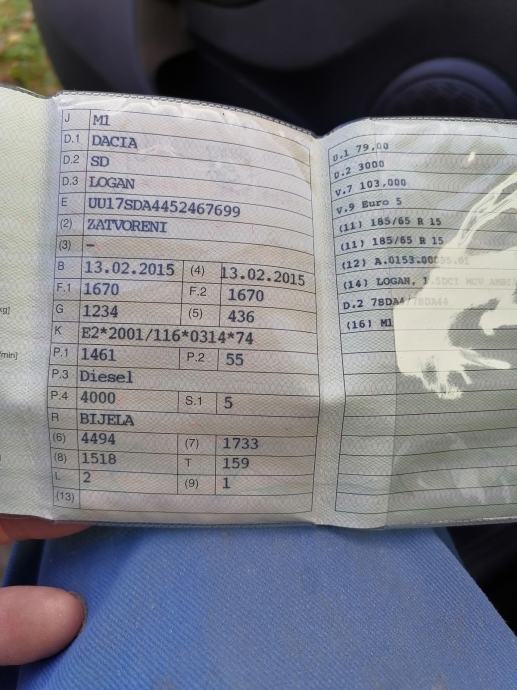 J M1
D.1 DACIA
D.2 SD
D.3 LOGAN
E UU17SDA4452467699
(2) ZATVORENI
(3) –
B 13.02.2015 (4) 13.02.2015
F.1 1670 F.2 1670
G 1234 (5) 436
K E2*2001/116*0314*74
P.1 1461 P.2 55
P.3 Diesel
P.4 4000 S.1 5
R BIJELA
(6) 4494 (7) 1733
(8) 1518 T 159
L 2 (9) 1
(13)
U.1 79,00
U.2 3000
V.7 103,000
V.9 Euro 5
(11) 185/65 R 15
(11) 185/65 R 15
(12) A.0153.
(14) LOGAN, 1.5DCI MCV
D.2 7SDA4/7SDA44
(16) M1